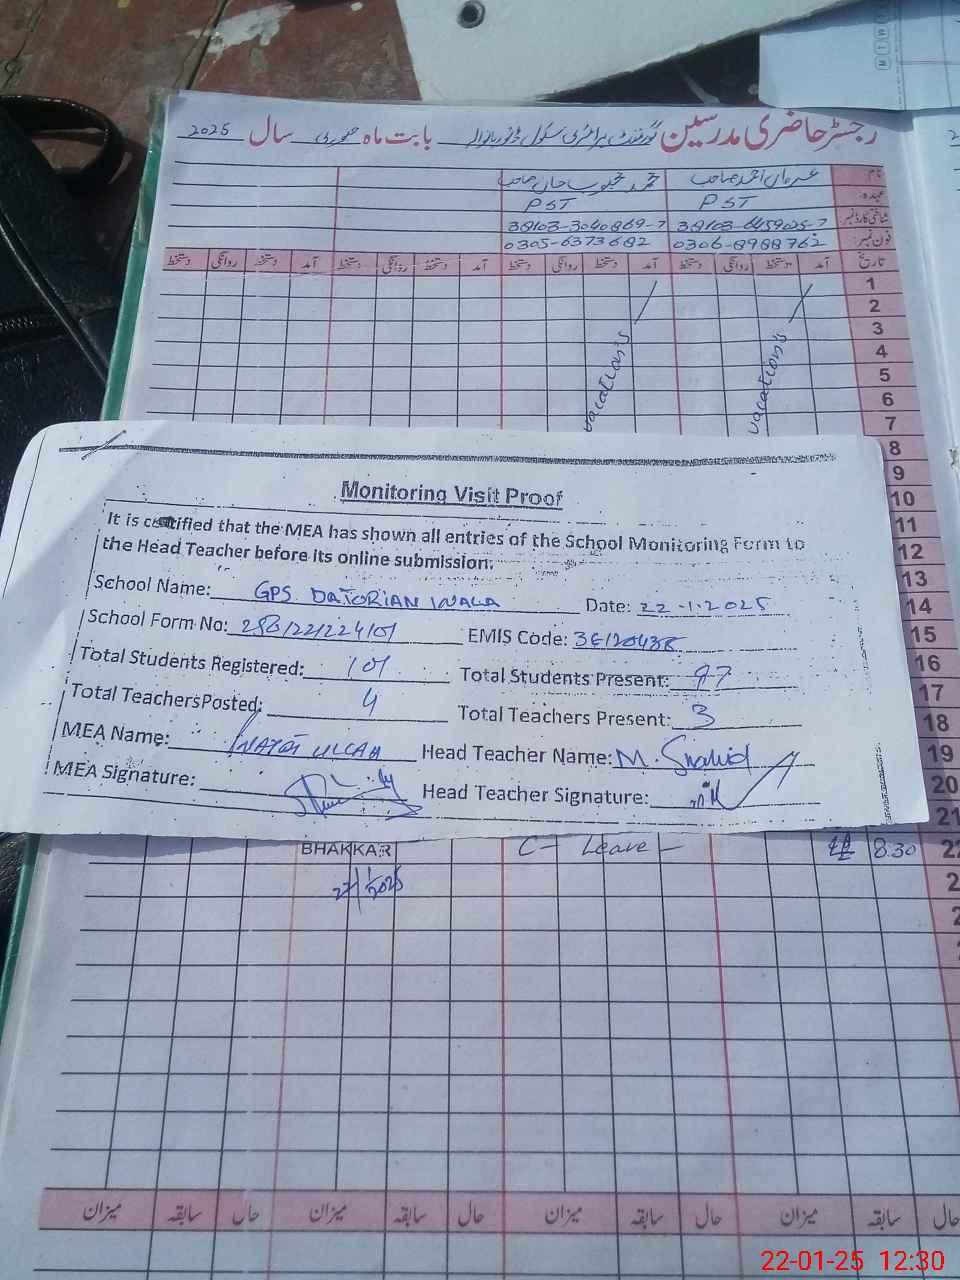 رجسٹر حاضری مدرسین گورنمنٹ پرائمری سکول بابت ماہ جنوری سال 2025
نام
عہدہ PST PST
شناختی کارڈ نمبر 38103-6459025-7 38103-3040869-7
فون نمبر 0306-8988762 0305-6373682
تاریخ آمد دستخط روانگی دستخط آمد دستخط روانگی دستخط آمد دستخط روانگی دستخط آمد دستخط روانگی دستخط
1
2
3
4
5
6
7
vacation's
vacation's
8
9
10
11
12
13
14
15
16
17
18
19
20
21
Monitoring Visit Proof
It is certified that the MEA has shown all entries of the School Monitoring Form to
the Head Teacher before its online submission.
School Name: GPS DATORIAN WALA Date: 22-1-2025
School Form No: EMIS Code:
Total Students Registered: 101 Total Students Present: 97
Total TeachersPosted: 4 Total Teachers Present: 3
MEA Name: Head Teacher Name: M. Shahid
MEA Signature: Head Teacher Signature:
BHAKKAR C- Leave - 8.30 22
22/1/2025
میزان سابقہ حال میزان سابقہ حال میزان سابقہ حال میزان سابقہ حال
22-01-25 12:30